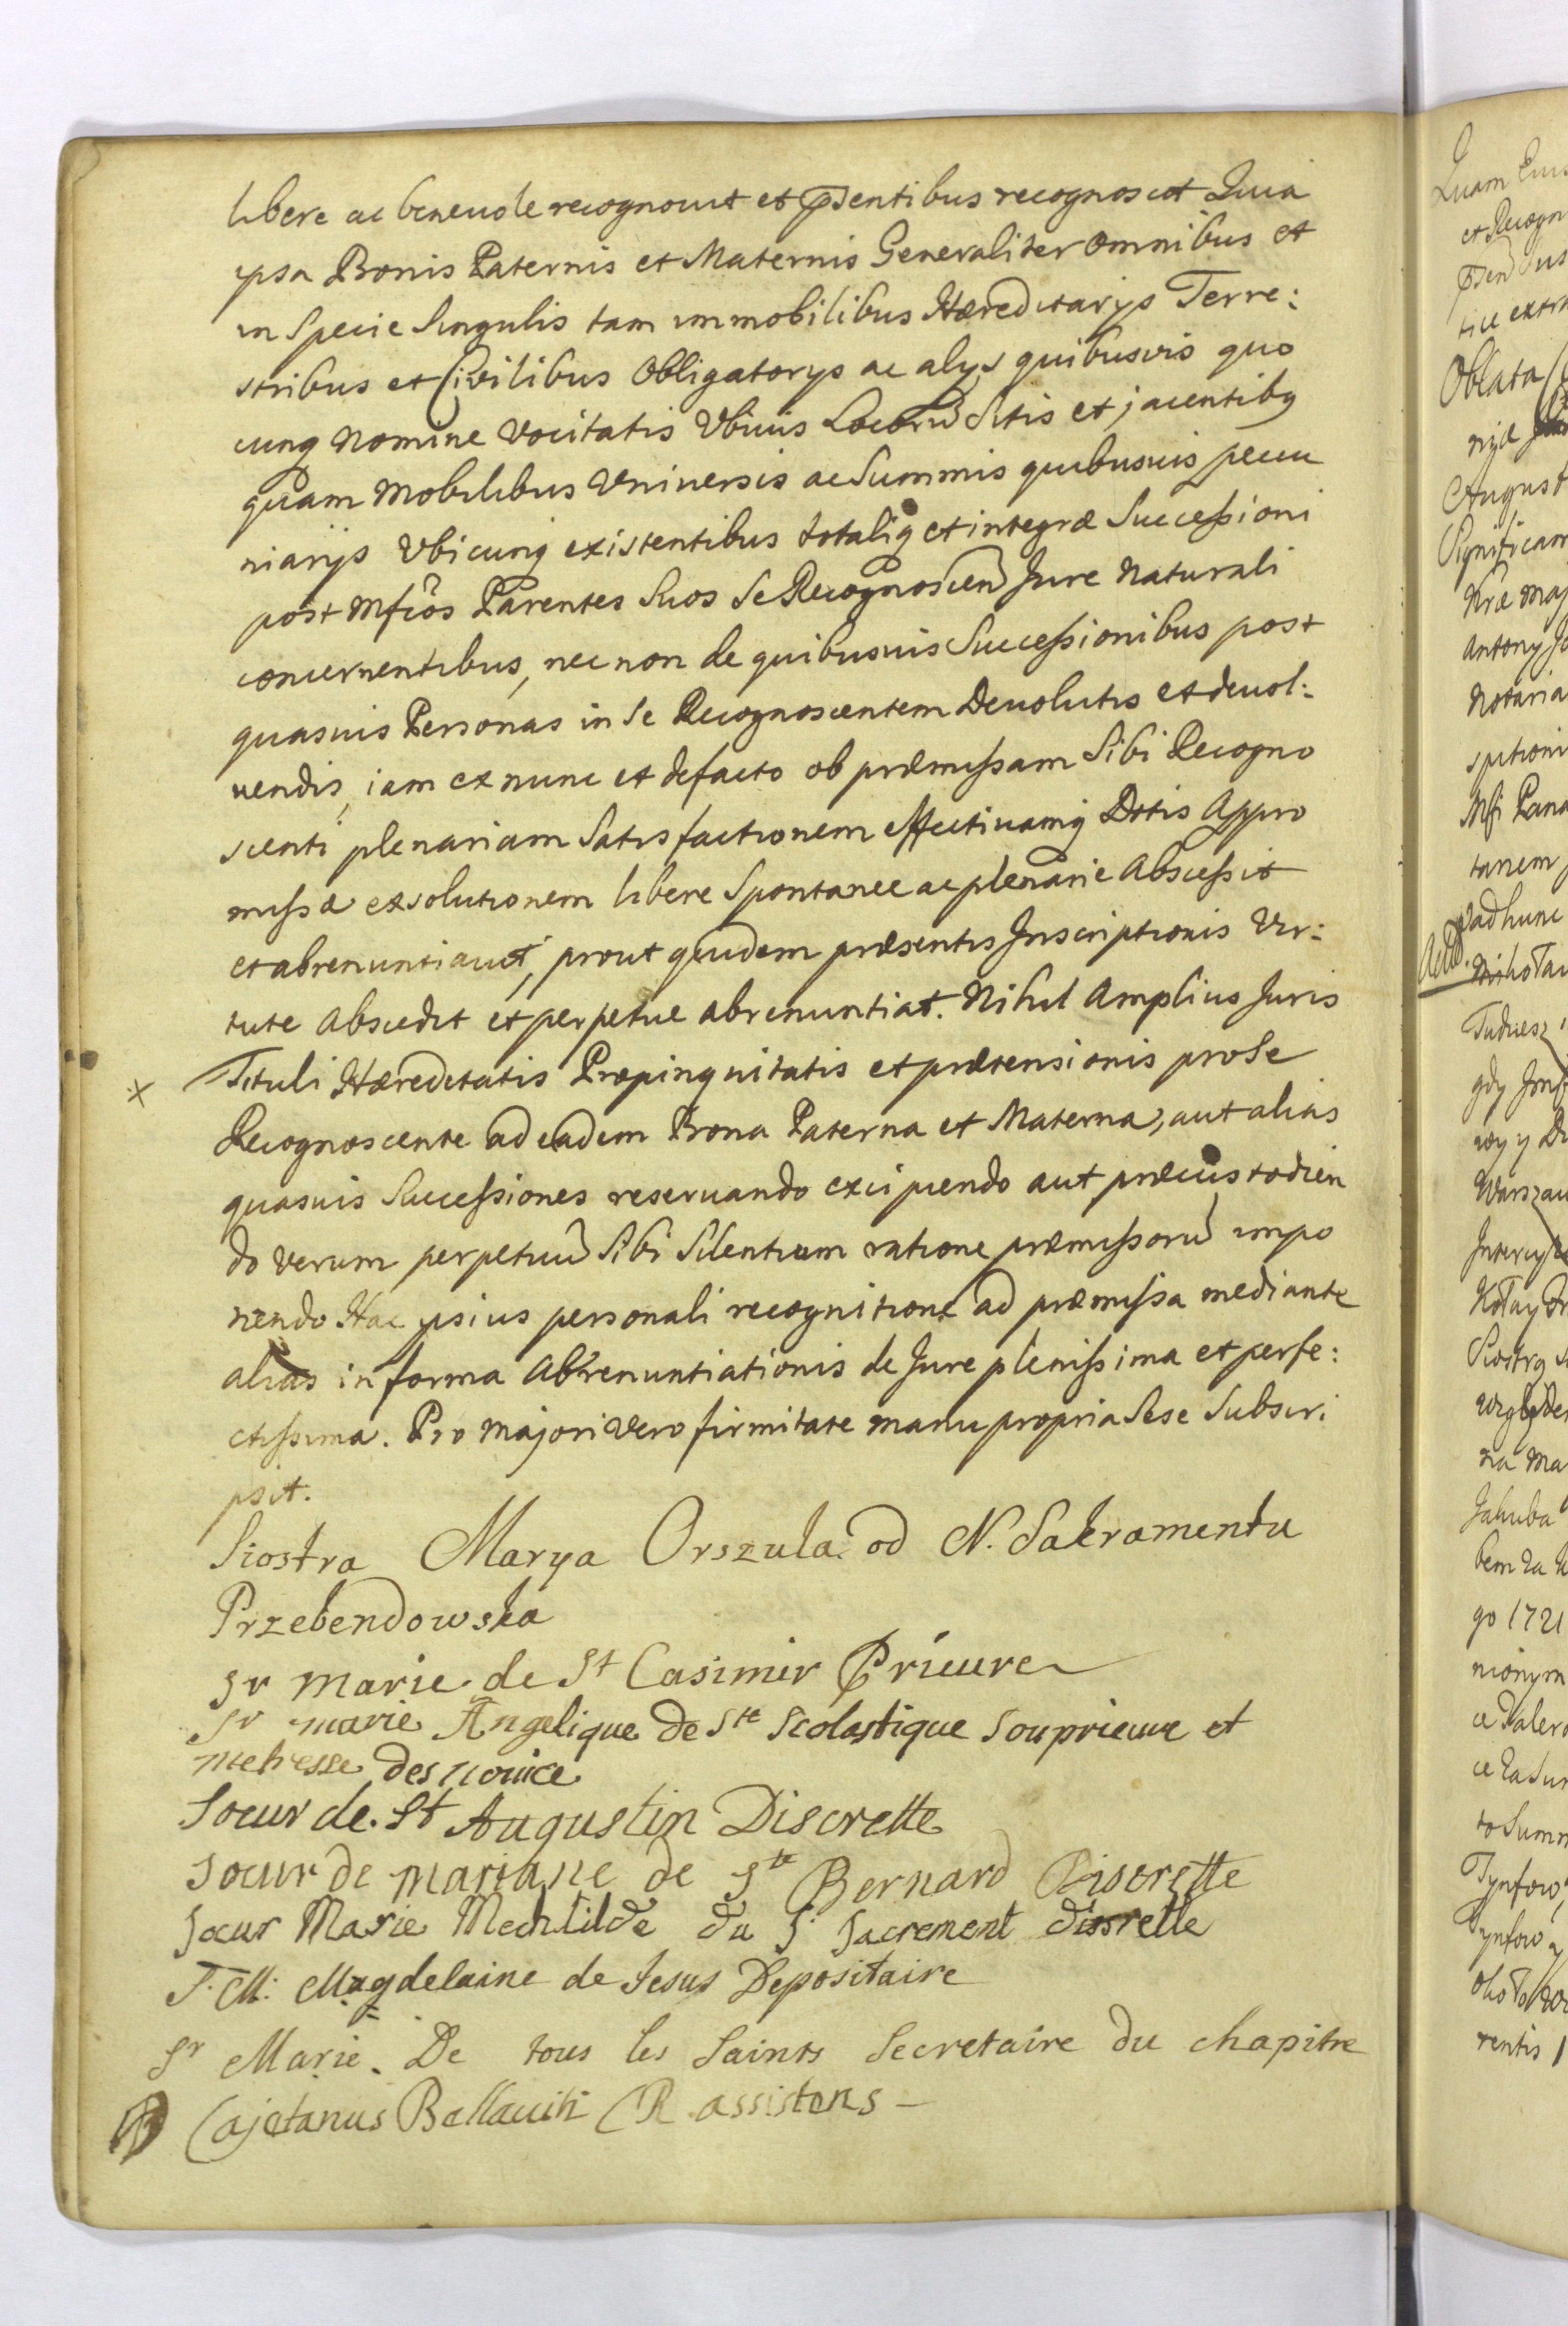 libere ac beneuole recognouit et p̄sentibus recognoscit Quia
ipsa Bonis Paternis et Maternis Generaliter omnibus et
in Specie Singulis tam immobilibus Hæreditarijs Terre:
stribus et Civilibus Obligatorijs ac alijs quibusvis quo
cunq nomine vocitatis Vbiuis Locorū Sitis et jacentibq
quam Mobilibus Vniuersis ac Summis quibusuis pecu
niarijs Vbicunq existentibus totaliq et integræ Successioni
post Mfcôs Parentes Suos Se Recognoscen Jure Naturali
concernentibus, nec non de quibusuis Successionibus post
quasuis Personas in Se Recognoscentem Deuolutis et deuol:
uendis, iam ex nunc et de facto ob præmissam Sibi Recogno
scenti plenariam Satisfactionem effectiuamq Dotis Appro
missæ exsolutionem libere Spontanee ac plenarie Abscessit
et abrenuntiauit, prout quidem præsentis Inscriptionis Vir:
tute Abscedit et perpetue abrenuntiat. Nihil Amplius Juris
× Tituli Hæreditatis Propinquitatis et prætensionis pro Se
Recognoscente ad eadem Bona Paterna et Materna, aut alias
quasuis Successiones reseruando excipiendo aut præcustodien
do verum perpetuū Sibi Silentium ratione præmissorū impo
nendo Hac ipsius personali recognitione ad præmissa mediante
alias in forma Abrenuntiationis de Jure plenissima et perfe:
ctissima. Pro majori vero firmitate manu propria Sese Subscri
psit.
Siostra Marya Orszula od N. Sakramentu
Przebendowska
Sr marie de St Casimir Prieure
Sr marie Angelique de Ste Scolastique Souprieure et
metresse des nouice
Soeur de St Augustin Discrette
Soeur de mariane de Ste Bernard Discrette
Soeur Marie Mechtilde du St Sacrement disrette
S. M: Magdelaine de Jesus Depositaire
Sr Marie. De tous les Saints Secretaire du chapitre
Cajetanus Bellauiti CR assistens
Quam
et Recogn
Oblata
August
Significam
Antony
Notaria
Pana
tanem
ad hunc
Tudiesz
gdy
Warszaw
Siostrą
na Ma
Jakuba
go 1721
to Summ
Tynfow
rentis